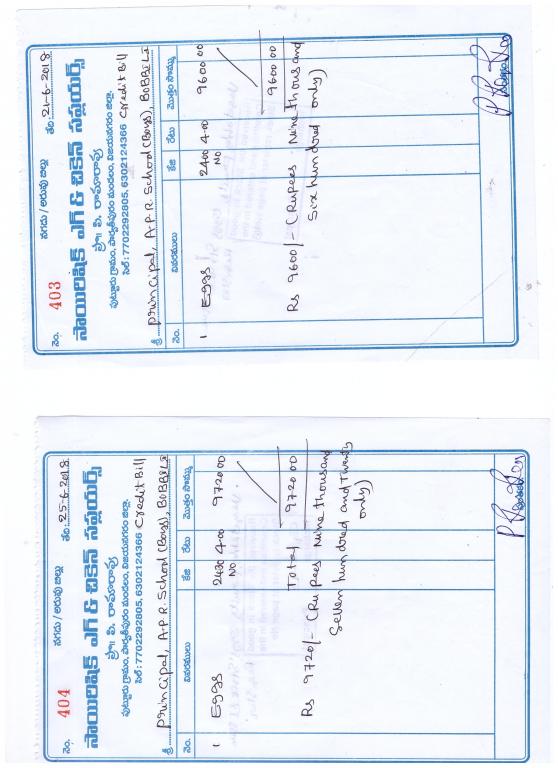 నం. 403 నగదు / అరువు బిల్లు తేది: 21-6-2018
సాయిరిషిక్ ఎగ్ & చికెన్ సప్లయర్స్
ప్రొ॥ పి. రామారావు
పుట్టూరు గ్రామం, పార్వతీపురం మండలం, విజయనగరం జిల్లా.
సెల్ : 7702292805, 6302124366 Credit Bill
శ్రీ Principal, A.P.R. School (Boys), BOBBILI
నం. వివరములు కేజి రేటు మొత్తం సొమ్ము
1 Eggs 2400 4-00 9600 00
NO
9600 00
Rs 9600/- (Rupees Nine thousand
Six hundred only)
నం. 404 నగదు / అరువు బిల్లు తేది: 25-6-2018
సాయిరిషిక్ ఎగ్ & చికెన్ సప్లయర్స్
ప్రొ॥ పి. రామారావు
పుట్టూరు గ్రామం, పార్వతీపురం మండలం, విజయనగరం జిల్లా.
సెల్ : 7702292805, 6302124366 Credit Bill
శ్రీ Principal, A.P.R. School (Boys), BOBBILI
నం. వివరములు కేజి రేటు మొత్తం సొమ్ము
1 Eggs 2430 4-00 9720 00
NO
Total 9720 00
Rs 9720/- (Rupees Nine thousand
Seven hundred and Twenty
only)